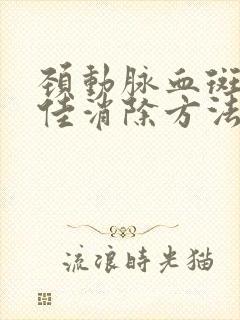 頚動脉血斑
佳消除方法
流浪時光猫